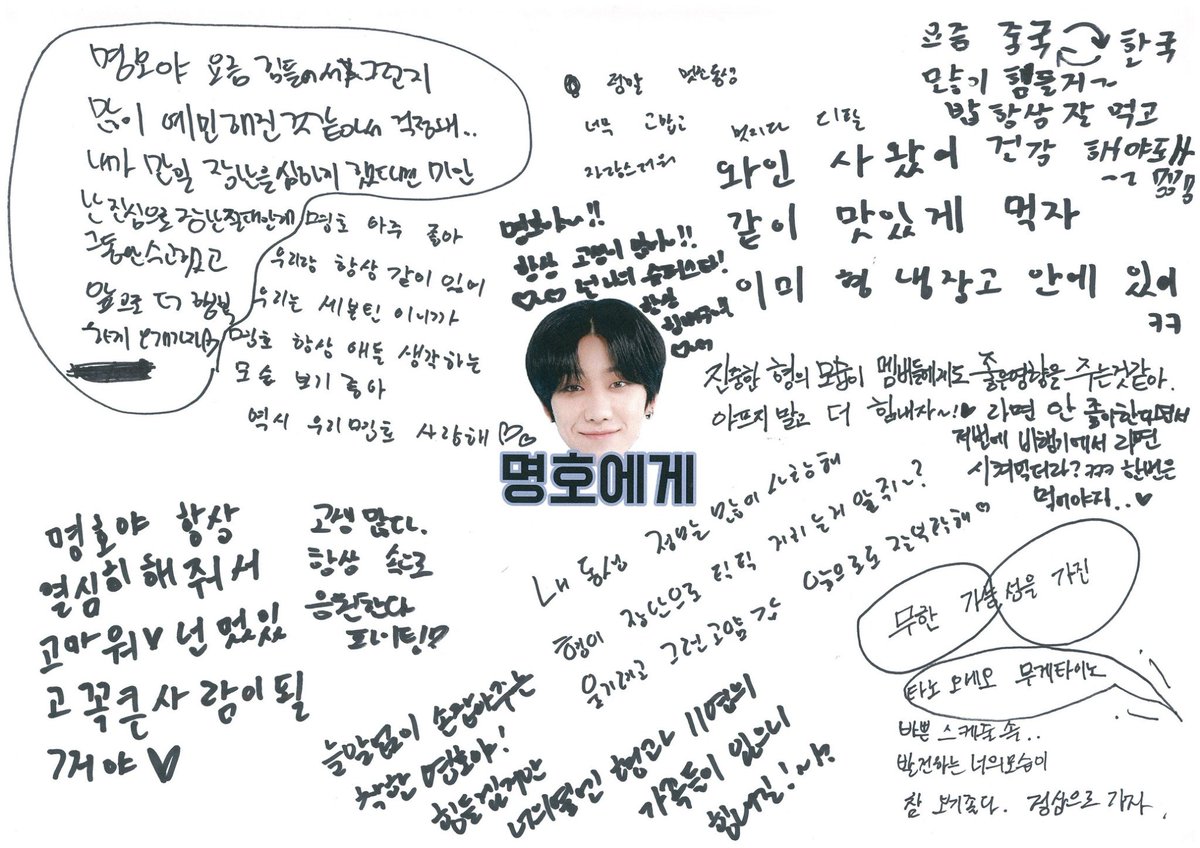 명호야 요즘 힘들어서 그런지
많이 예민해진것 같아서 걱정돼..
내가 말일 장난을 심하게 했다면 미안
난 진심으로 장난 절대안해
그동안 수고했고
앞으로 더 행복
하게 보내자
명호 아주 좋아
우리랑 항상 같이 있어
우리는 세븐틴 이니까
명호 항상 애들 생각하는
모습 보기 좋아
역시 우리 명호 사랑해♡♡
정말 멋진동생
너무 고맙고
자랑스러워
멋지다 디팔
요즘 중국 한국
많이 힘들지~
밥 항상 잘 먹고
건강 해야돼
와인 사 왔어
같이 맛있게 먹자
이미 형 냉장고 안에 있어
ㅋㅋ
명호야~!!
항상 고생이 많아~!!
넌 나의 슈퍼스타!
항상
힘내주셔
진중한 형의 모습이 멤버들에게도 좋은영향을 주는것같아.
아프지 말고 더 힘내자~!♥
라면 안 좋아한다면서
저번에 비행기에서 라면
시켜먹더라? ㅋㅋㅋ 한번은
먹어야지..♥
명호에게
명호야 항상
열심히 해 줘서
고마워♥ 넌 멋있
고 꼭 큰 사람이 될
꺼야♡
고생 많다.
항상 속으로
응원한다
파이팅♡
내 동생 정말 많이 사랑해
형이 장난으로 틱틱 거리는거 알쥐~?
앞으로도 잘부탁해♡
늘 말없이 손잡아주는
착한 명호야!
힘들겠지만
너의 옆엔 형과 11명의
가족들이 있으니
힘내길! 야!
무한 가능성을 가진
타노 오네오 무게타이노
바쁜 스케줄 속..
발전하는 너의모습이
참 보기좋다. 정상으로 가자.